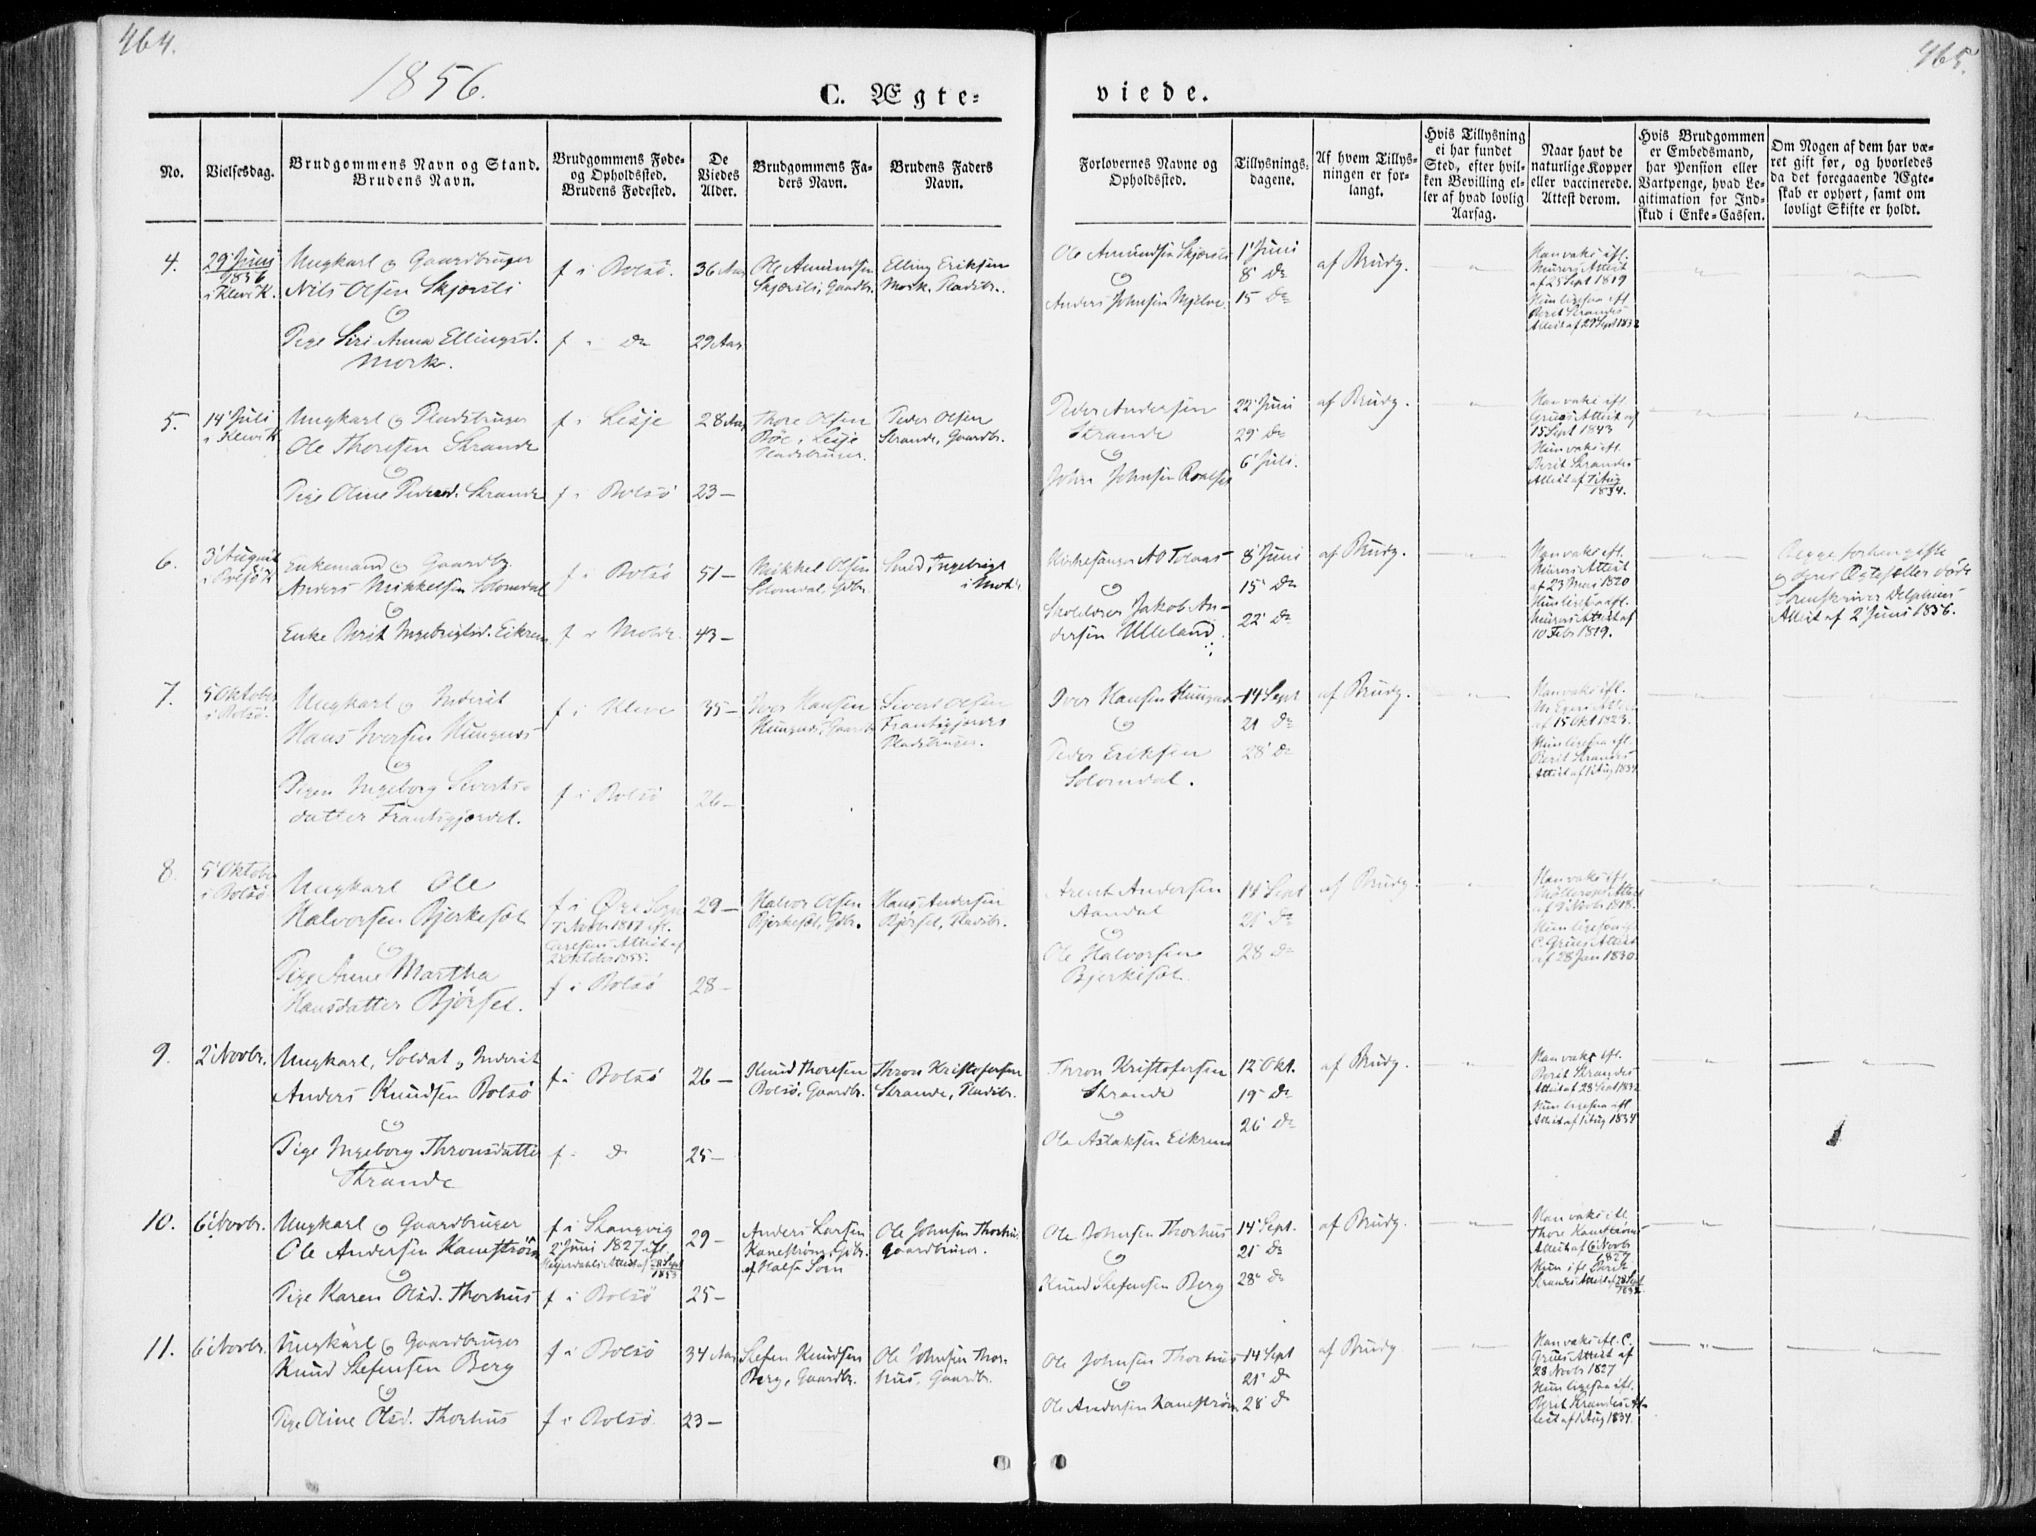 464.
465.
1856.
C. Ægte=
viede.
No.
Vielsesdag.
Brudgommens Navn og Stand.
Brudens Navn.
Brudgommens Føde-
og Opholdssted.
Brudens Fødested.
De
Viedes
Alder.
Brudgommens Fa-
ders Navn.
Brudens Faders
Navn.
Forlovernes Navne og
Opholdssted.
Tillysnings-
dagene.
Af hvem Tillys-
ningen er for-
langt.
Hvis Tillysning
ei har fundet
Sted, efter hvil-
ken Bevilling el-
ler af hvad lovlig
Aarsag.
Naar havt de
naturlige Kopper
eller vaccinerede.
Attest derom.
Hvis Brudgommen
er Embedsmand,
har Pension eller
Vartpenge, hvad Le-
gitimation for Ind-
skud i Enke-Cassen.
Om Nogen af dem har væ-
ret gift før, og hvorledes
da det foregaaende Ægte-
skab er ophørt, samt om
lovligt Skifte er holdt.
4.
29' Juni
1856
i Klevik.
Ungkarl og Gaardbruger
Nils Olsen Skjærsli
og
Pige Siri Anna Ellingsd.
Mork.
f i Bolsø.
f i do
36 Aar
29 Aar
Ole Amundsen
Skjærsli, Gaardbr.
Elling Eriksen
Mork. Pladsbr.
Ole Amundsen Skjærsli
og
Anders Johnsen Mjelve.
1' Juni
8' do
15 do
af Brudg.
Han vaks. efl.
Mürers Attest
af 25 Sept 1819
Hun ligesaa efl.
Berit Strandes
Attest af 29 Sept 1832
5.
14' Juli
i Klevik
Ungkarl og Pladsbruger
Ole Thoresen Strande
og
Pige Oline Pedersd. Strande
f i Lesje
f i Bolsø
28 Aar
23 —
Thore Olsen
Bøe i Lesje
Pladsbruger.
Peder Olsen
Strande, Gaardbr.
Peder Andersen
Strande
og
John Johnsen Roalset
22' Juni
29' do
6' Juli.
af Brudg.
Han vaks efl.
Grües Attest af
15 Sept 1843
Hun vaks efl.
Berit Strandes
Attest af 1 Aug
1834.
6.
3' August
i Bolsø K
Enkemand og Gaardbr.
Anders Mikkelsen Solemdal
og
Enke Berit Ingebrigtsd. Eikrem
f i Bolsø
f i Molde.
51 —
43 —
Mikkel Olsen
Solemdal, Gdbr.
Smed Ingebrigt
i Molde
Kirkesanger
og
Skolelærer Jakob An-
dersen Ulleland.
8' Juni
15' do
22' do
af Brudg.
Han vaks efl.
Mürers Attest
af 23 Mai 1820
Hun ligesaa efl.
Mürers Attest af
10 Feb 1819.
Begge forhen gifte
og deres Ægtefæller døde
Sorenskriver Delphins
Attest af 2' Juni 1856.
7.
5 Oktober
i Bolsø.
Ungkarl og Inderst
Hans Iversen Hungnes
og
Pigen Ingeborg Siverts-
datter Frantsgjerdet.
f i Kleve
f i Bolsø
35 —
26 —
Iver Hansen
Hungnes, Gaardbr.
Sivert Olsen
Frantsgjerdet
Pladsbruger.
Iver Hansen Hungnes
og
Peder Eriksen
Solemdal.
14 Sept
21 do
28' do
af Brudg.
Han vaks efl.
af 15 Okt 1823.
Hun ligesaa efl.
Berit Strandes
Attest af 1 Aug 1834
8.
5' Oktober
i Bolsø
Ungkarl Ole
Halvorsen Bjerkeset
og
Pige Anne Martha
Hansdatter Bjørset.
f i Øre Sogn
f i Bolsø
29 —
28 —
Halvor Olsen
Bjerkeset, Gdbr.
Hans Andersen
Bjørset, Pladsbr.
Arent Andersen
Aandal
og
Ole Halvorsen
Bjerkeset.
14' Sept
21' do
28 do
af Brudg.
Han vaks efl.
Hun ligesaa efl.
C. Grües Attest
af 28 Jan 1830.
9.
2' Novbr.
Ungkarl, Soldat og Inderst
Anders Knudsen Bolsø
og
Pige Ingeborg Thronsdatter
Strande
f i Bolsø
f i do
26 —
25 —
Knud Thoresen
Bolsø, Gaardbr.
Thron Kristofersen
Strande, Pladsbr.
Thron Kristofersen
Strande
og
Ole Aslaksen Eikrem
12' Okt.
19' do
26' do
af Brudg.
Han vaks efl.
Berit Strandes
Attest af 28 Sept 1832
Hun ligesaa efl.
Attest af 1 Aug 1834
10.
6' Novbr.
Ungkarl og Gaardbruger
Ole Andersen Kanestrøm
og
Pige Karen Olsd. Thorhus
f i Stangvig
2' Juni 1827 efl.
f i Bolsø
29 —
25 —
Anders Larsen
Kanestrøm, Gdbr.
af Halse Sogn
Ole Johnsen Thorhus
Gaardbruger.
Ole Johnsen Thorhus
og
Knud Stefensen Berg
14' Sept.
21' do
28' do
af Brudg.
Han vaks efl.
Thore Kanestrøms
Attest af 6 Novbr
1827
Hun efl. Berit
Strandes Attest af 28 Sept
1832.
11.
6' Novbr.
Ungkarl og Gaardbruger
Knud Stefensen Berg
og
Pige Oline Olsd. Thorhus
f i Bolsø
f i Bolsø
34 Aar
23 —
Stefen Knudsen
Berg, Gaardbr.
Ole Johnsen Thor-
hus, Gaardbr.
Ole Johnsen Thorhus
og
Ole Andersen Kanestrøm
14' Sept
21' do
28' do
af Brudg.
Han vaks efl. C.
Grües Attest af
28 Novbr 1827
Hun ligesaa efl.
Berit Strandes At-
test af 1 Aug 1834.